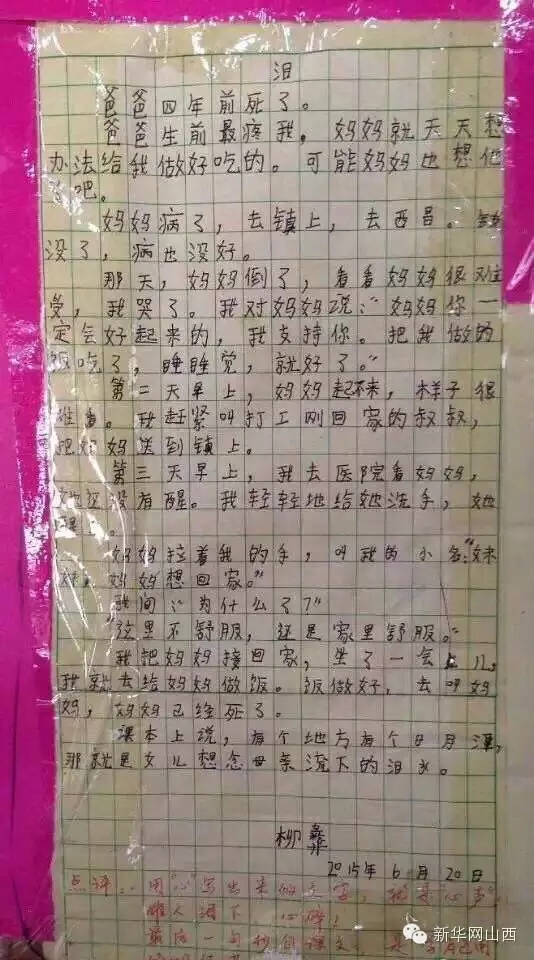 泪
爸爸四年前死了。
爸爸生前最疼我，妈妈就天天想
办法给我做好吃的。可能妈妈也想他
了吧。
妈妈病了，去镇上，去西昌。钱
没了，病也没好。
那天，妈妈倒了，看看妈妈很难
受，我哭了。我对妈妈说：“妈妈你一
定会好起来的，我支持你。把我做的
饭吃了，睡睡觉，就好了。”
第二天早上，妈妈起不来，样子很
难看。我赶紧叫打工刚回家的叔叔，
把妈妈送到镇上。
第三天早上，我去医院看妈妈，
她还没有醒。我轻轻地给她洗手，她
醒了。
妈妈拉着我的手，叫我的小名：“妹
妹，妈妈想回家。”
我问：“为什么了？”
“这里不舒服，还是家里舒服。”
我把妈妈接回家，坐了一会儿，
我就去给妈妈做饭。饭做好，去叫妈
妈，妈妈已经死了。
课本上说，有个地方有个日月潭，
那就是女儿想念母亲流下的泪水。
柳彝
2015年6月20日
点评：用“心”写出来的文字，就是“心声”，
催人泪下，心碎！
最后一句
新华网山西